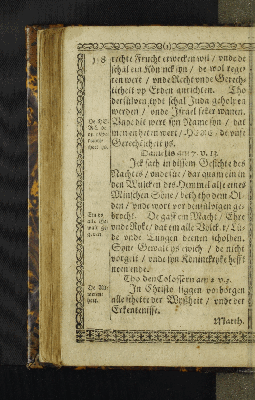 rechte Frucht erwecken wil / vnde de
schal ein Köninck syn / de wol rege-
ren wert / vnde Recht vnde Gerech-
ticheit vp Erden anrichten. Tho
der süluen tydt schal Juda geholpen
werden / vnde Israel seker wanen.
Vnde dit wert syn Name syn / dat
men en heten wert / HERE / de vnse
Gerechticheit ys.
Danielis am 7. v. 13.
Ick sach in dissem Gesichte des
Nachtes / vnde süe / dar quam ein in
den Wulcken des Hemmels alse eines
Minschen Söne / beth tho dem Ol-
den / vnde wort vor densüluigen ge-
bracht. De gaff em Macht / Ehre
vnde Ryke / dat em alle Völck. r / Lü-
de vnde Tungen denen scholden.
Syne Gewalt ys ewich / de nicht
vorgeit / vnde syn Koninckryke hefft
neen ende.
Tho den Colossern am 2. v. 3.
In Christo liggen vorborgen
alle schette der Wyßheit / vnde der
Erkentenisse.
Matth.